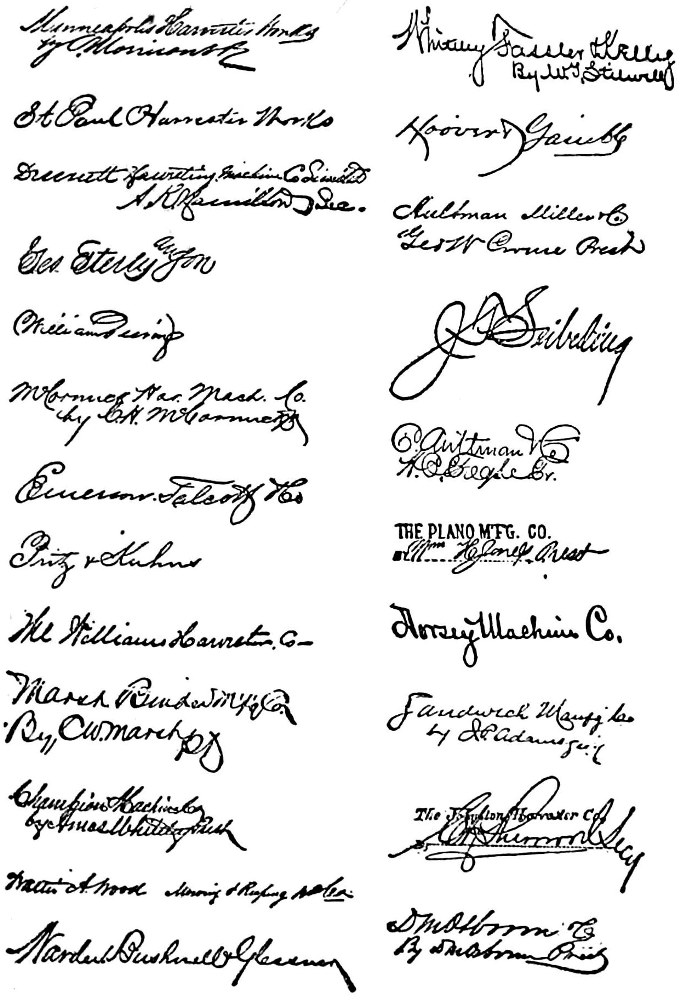 Minneapolis Harvester Works
by C. Morrison
St Paul Harvester Works
Harvesting Machine Co Limited
A. K. Hamilton Sec.
Geo. Esterly & Son
William Deering
McCormick Har. Mach. Co.
by C.H. McCormick
Emerson, Talcott & Co
Fritz & Kuhns
The Williams Harvester Co
Marsh Binder M'f'g Co.
By C W. Marsh
Champion Machine Co
by Amos Whiteley Prest
Walter A. Wood Mowing & Reaping M Co
Warder Bushnell & Glessner
Whitney Fassler & Kelly
By W. Stilwell
Hoover & Gamble
Aultman Miller & Co
Geo W Crouse Prest
J F Seiberling
C. Aultman & Co
THE PLANO M'F'G. CO.
Wm H Jones Prest
Dorsey Machine Co.
Sandwich Manfg Co
by J P Adams
The Johnston Harvester Co
Secy
D M Osborne & Co
By D M Osborne Prest